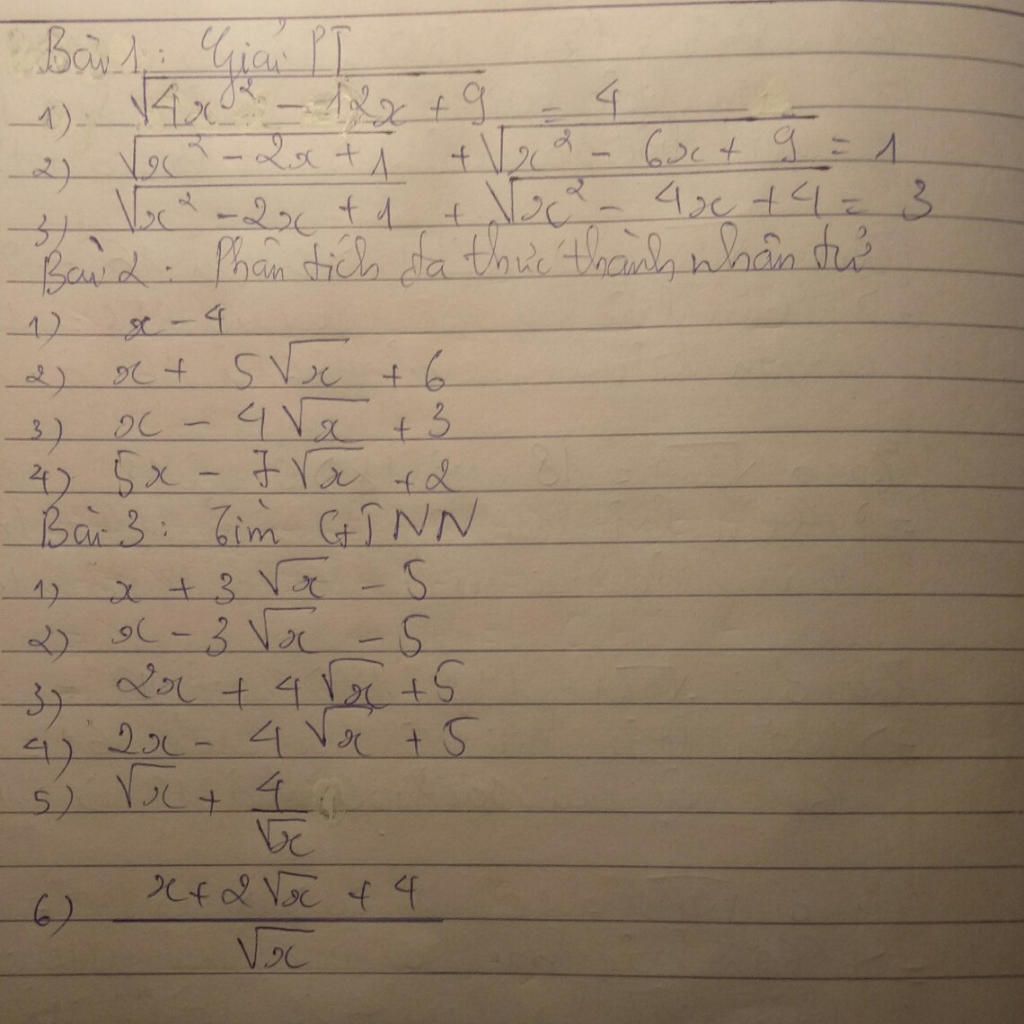 Bài 1: Giải PT
1) √(4x² - 12x + 9) = 4
2) √(x² - 2x + 1) + √(x² - 6x + 9) = 1
3) √(x² - 2x + 1) + √(x² - 4x + 4) = 3
Bài 2: Phân tích đa thức thành nhân tử
1) x - 4
2) x + 5√x + 6
3) x - 4√x + 3
4) 5x - 7√x + 2
Bài 3: Tìm GTNN
1) x + 3√x - 5
2) x - 3√x - 5
3) 2x + 4√x + 5
4) 2x - 4√x + 5
5) √x + 4/√x
6) (x + 2√x + 4)/√x